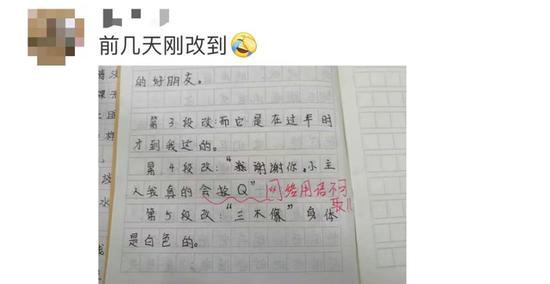 前几天刚改到
的好朋友。
第3段改:而它是在过年时
才到我这的。
第4段改:“感谢谢你。小主
人我真的会谢Q”网络用语不可
取!!
第5段改:“三木像”身体
是白色的。
水